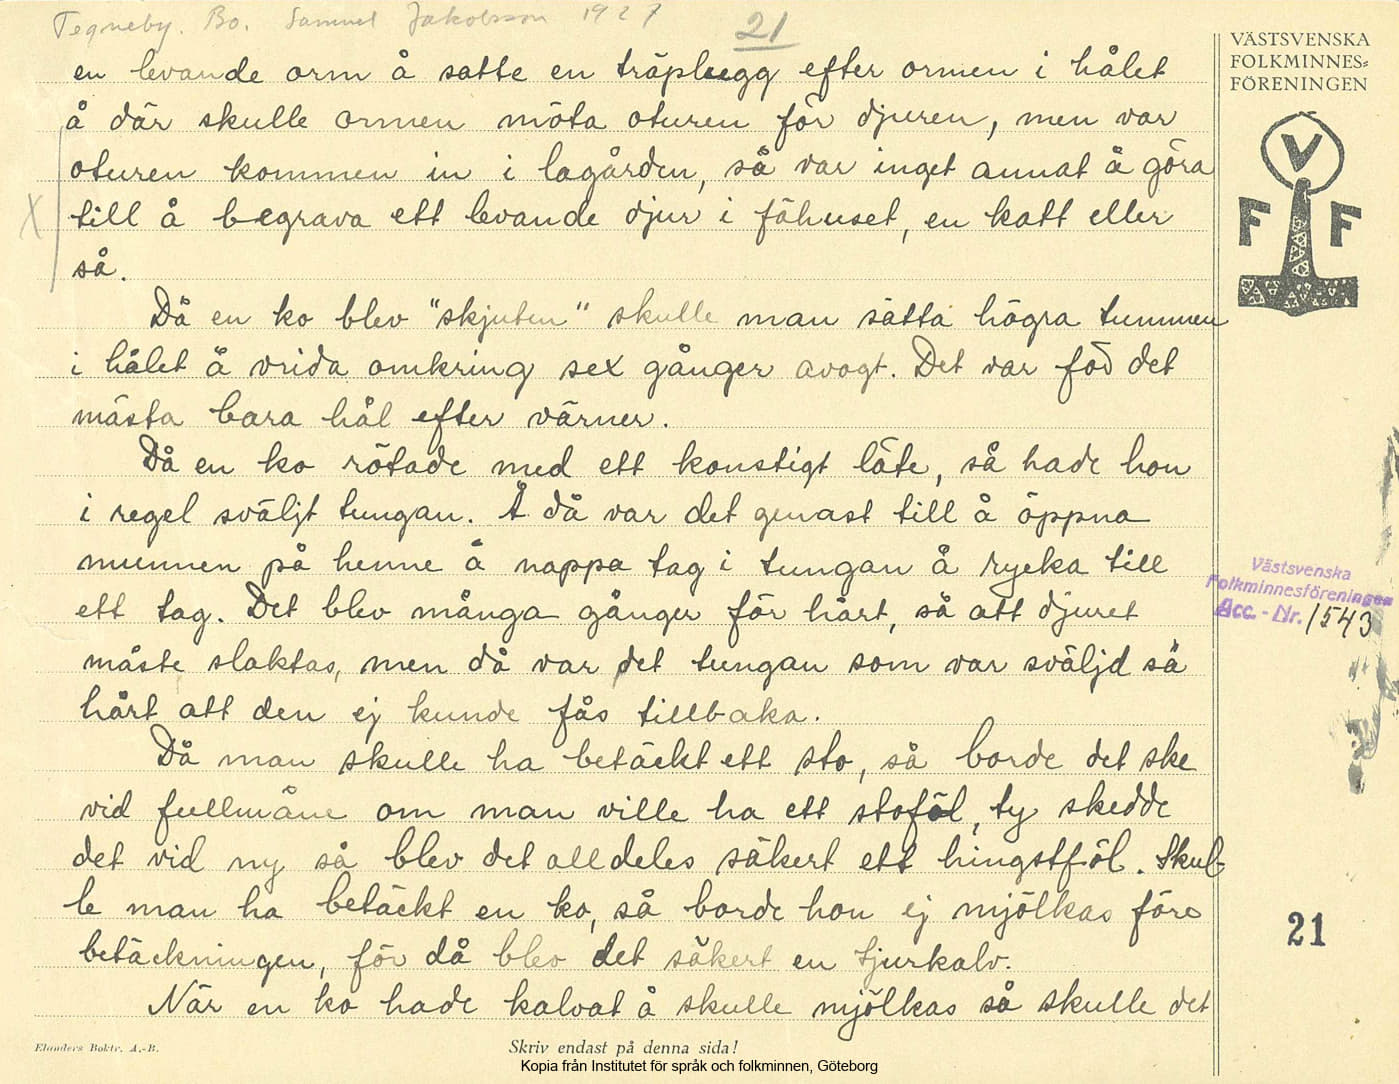 Tegneby. Bo. Samuel Jakobsson 1927
21
en levande orm å satte en träplugg efter ormen i hålet
å där skulle ormen möta oturen för djuren, men var
oturen kommen in i lagården, så var inget annat å göra
till å begrava ett levande djur i fähuset, en katt eller
så.
Då en ko blev "skjuten" skulle man sätta högra tummen
i hålet å vrida omkring sex gånger avogt. Det var fö det
mästa bara hål efter värner.
Då en ko rötade med ett konstigt läte, så hade hon
i regel sväljt tungan. Å då var det genast till å öppna
munnen på henne å nappa tag i tungan å rycka till
ett tag. Det blev många gånger för hårt, så att djuret
måste slaktas, men då var det tungan som var sväljd så
hårt att den ej kunde fås tillbaka.
Då man skulle ha betäckt ett sto, så borde det ske
vid fullmåne om man ville ha ett stoföl, ty skedde
det vid ny så blev det alldeles säkert ett hingstföl. Skul-
le man ha betäckt en ko, så borde hon ej mjölkas före
betäckningen, för då blev det säkert en tjurkalv.
När en ko hade kalvat å skulle mjölkas så skulle det
VÄSTSVENSKA
FOLKMINNES-
FÖRENINGEN
V
F F
Västsvenska
Folkminnesföreningen
Acc. - Nr. 1543
21
Elanders Boktr. A.-B.
Skriv endast på denna sida!
Kopia från Institutet för språk och folkminnen, Göteborg